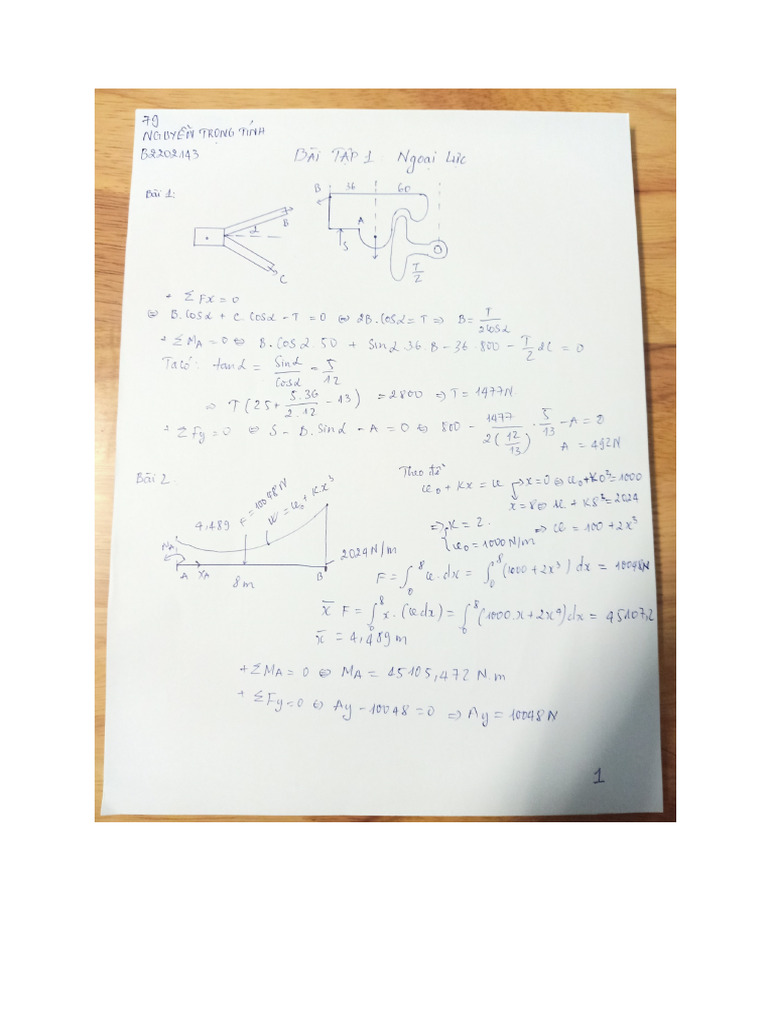 79
NGUYỄN TRỌNG TÍNH
B2202143
BÀI TẬP 1 Ngoại Lực
Bài 1:
B 36 60
B
α
C
A
S
T/2
+ ΣFx = 0
⇔ B.cosα + C.cosα - T = 0 ⇔ 2B.cosα = T ⇒ B = T/2cosα
+ ΣMA = 0 ⇔ B.cosα.50 + sinα.36 B - 36.800 - T/2 = 0
Ta có: tanα = sinα/cosα = 5/12
⇒ T(25 + 5.36/2.12 - 13) = 2800 ⇒ T = 1477N
+ ΣFy = 0 ⇔ S - B.sinα - A = 0 ⇔ 800 - 1477/2(12/13) . 5/13 - A = 0
A = 492N
Bài 2
Theo đề
ω0 + Kx = ω
x=0 ⇔ ω0 + K0³ = 1000
x = 8 ⇔ ω + K8³ = 2024
4,489
F = 10048N
W = ω0 + Kx³
⇒ K = 2
ω0 = 1000 N/m
⇒ ω = 100 + 2x³
MA
A XA
8m
B
2024N/m
F = ∫₀⁸ ω.dx = ∫₀⁸ (1000 + 2x³) dx = 10048N
x̄ F = ∫₀⁸ x.(ωdx) = ∫₀⁸ (1000.x + 2x⁴) dx = 45107,2
x̄ = 4,489 m
+ ΣMA = 0 ⇔ MA = 45105,472 N.m
+ ΣFy = 0 ⇔ Ay - 10048 = 0 ⇒ Ay = 10048N
1